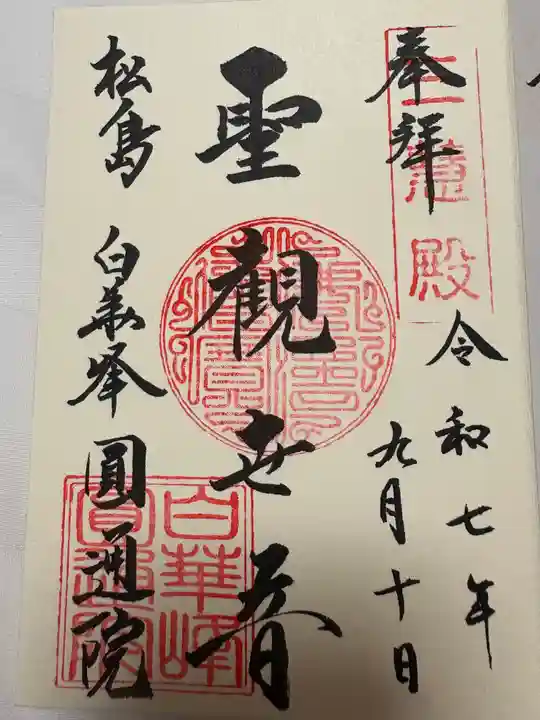 奉拜
三慧殿
令和七年
九月十日
聖觀世音
松島 白華峰 圓通院
白華峰
圓通院